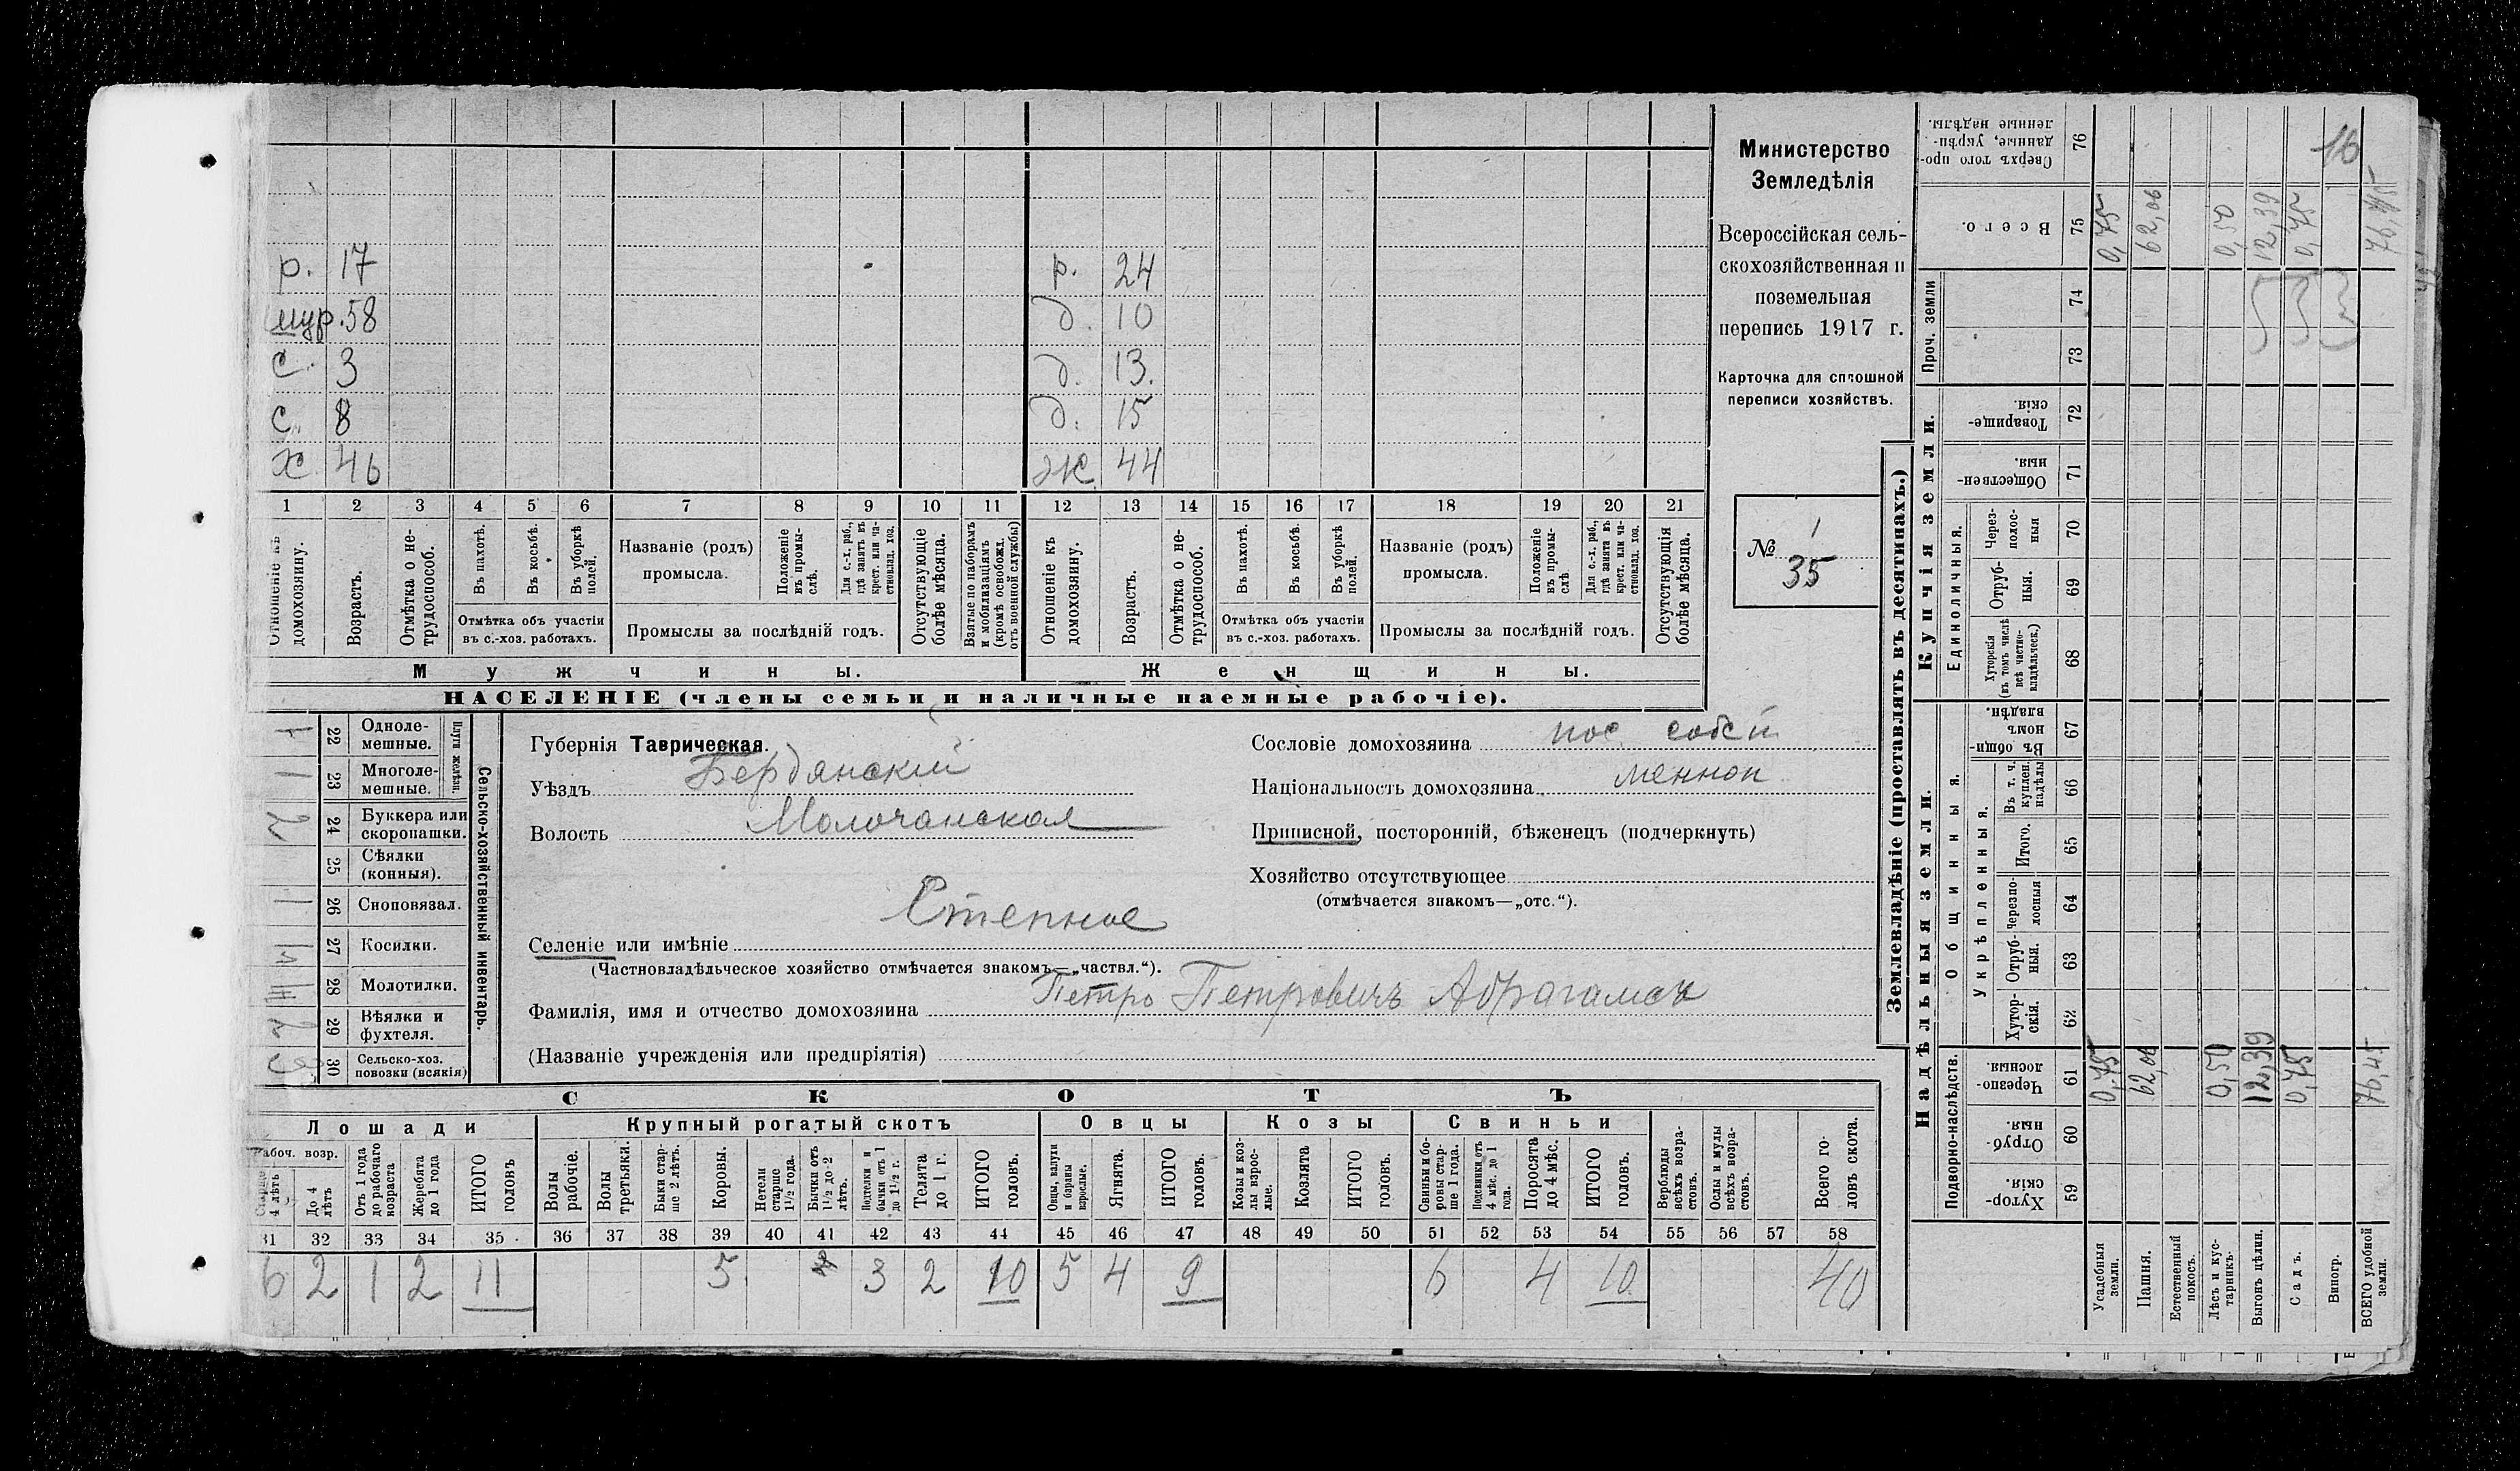 Министерство
Земледѣлія
Всероссійская сель-
скохозяйственная и
поземельная
перепись 1917 г.
Карточка для сплошной
переписи хозяйствъ.
№ 1
35
р. 17 р. 24
шур. 58 д. 10
с. 3 д. 13.
с. 8 д. 15
х 46 ж 44
1 2 3 4 5 6 7 8 9 10 11 12 13 14 15 16 17 18 19 20 21
Отношеніе къ домохозяину.
Возрастъ.
Отмѣтка о не-трудоспособ.
Въ пахотѣ.
Въ косьбѣ.
Въ уборкѣ полей.
Отмѣтка объ участіи
въ с.-хоз. работахъ.
Названіе (родъ)
промысла.
Положеніе въ промы-слѣ.
Для с.-х. раб., гдѣ занятъ въ крест. или ча-стновлад. хоз.
Промыслы за послѣдній годъ.
Отсутствующіе болѣе мѣсяца.
Взятые по наборамъ и мобилизаціямъ (кромѣ освобожд. отъ военной службы)
Отношеніе къ домохозяину.
Возрастъ.
Отмѣтка о не-трудоспособ.
Въ пахотѣ.
Въ косьбѣ.
Въ уборкѣ полей.
Отмѣтка объ участіи
въ с.-хоз. работахъ.
Названіе (родъ)
промысла.
Положеніе въ промы-слѣ
Для с.-х. раб., гдѣ занята въ крест. или ча-стновлад. хоз.
Промыслы за послѣдній годъ.
Отсутствующія болѣе мѣсяца.
Мужчины. Женщины.
НАСЕЛЕНІЕ (члены семьи и наличные наемные рабочіе).
Сельско-хозяйственный инвентарь.
Плуги желѣзн.
1 22 Одноле-мешные.
1 23 Многоле-мешные.
2 24 Буккера или скоропашки.
25 Сѣялки (конныя).
1 26 Сноповязал.
27 Косилки.
28 Молотилки.
2 29 Вѣялки и фухтеля.
3 30 Сельско-хоз. повозки (всякія)
Губернія Таврическая.
Уѣздъ Бердянскій
Волость Молочанская
Селеніе или имѣніе Степное
(Частновладѣльческое хозяйство отмѣчается знакомъ—„частвл.“).
Фамилія, имя и отчество домохозяина Петро Петровичъ Абрагамсъ
(Названіе учрежденія или предпріятія)
Сословіе домохозяина пос. собст
Національность домохозяина менон
Приписной, посторонній, бѣженецъ (подчеркнуть)
Хозяйство отсутствующее
(отмѣчается знакомъ—„отс.“).
СКОТЪ
Лошади Крупный рогатый скотъ Овцы Козы Свиньи
Рабоч. возр.
Старше 4 лѣтъ
До 4 лѣтъ
Отъ 1 года до рабочаго возраста
Жеребята до 1 года
ИТОГО головъ
Волы рабочіе.
Волы третьяки.
Быки стар-ше 2 лѣтъ.
Коровы.
Нетели старше 1½ года.
Бычки отъ 1½ до 2 лѣтъ.
Подтелки и бычки отъ 1 до 1½ г.
Телята до 1 г.
ИТОГО головъ.
Овцы, валухи и бараны взрослые.
Ягнята.
ИТОГО головъ.
Козы и коз-лы взрос-лые.
Козлята
ИТОГО головъ.
Свиньи и бо-ровы стар-ше 1 года.
Подсвинки отъ 4 мѣс. до 1 года.
Поросята до 4 мѣс.
ИТОГО головъ.
Верблюды всѣхъ возра-стовъ.
Ослы и мулы всѣхъ возра-стовъ.
Всего го-ловъ скота.
31 32 33 34 35 36 37 38 39 40 41 42 43 44 45 46 47 48 49 50 51 52 53 54 55 56 57 58
6 2 1 2 11 5 3 2 10 5 4 9 6 4 10 40
Землевладѣніе (проставлять въ десятинахъ.)
Надѣльныя земли. Купчія земли.
Подворно-наслѣдств.
Общинныя.
Укрѣпленныя.
Единоличныя.
Проч. земли
Хутор-скія. 59
Отруб-ныя. 60
Черезпо-лосныя. 61
Хутор-скія. 62
Отруб-ныя. 63
Черезпо-лосныя 64
Итого. 65
Въ т. ч. куплен. надѣлы 66
Въ общин-номъ владѣн. 67
Хуторскія (въ томъ числѣ всѣ частно-владѣльческ.) 68
Отруб-ныя. 69
Через-полос-ныя 70
Обществен-ныя. 71
Товарище-скія. 72
73
74
Всего. 75
Сверхъ того про-данные, укрѣп-ленные надѣлы. 76
Усадебныя земли. 0,75 0,75
Пашня. 62,06 62,06
Естественный покосъ.
Лѣсъ и кус-тарникъ. 0,50 0,50
Выгонъ цѣлин. 12,39 12,39
Садъ. 0,75 0,75
Виногр.
ВСЕГО удобной земли. 76,45 76,45
533
16